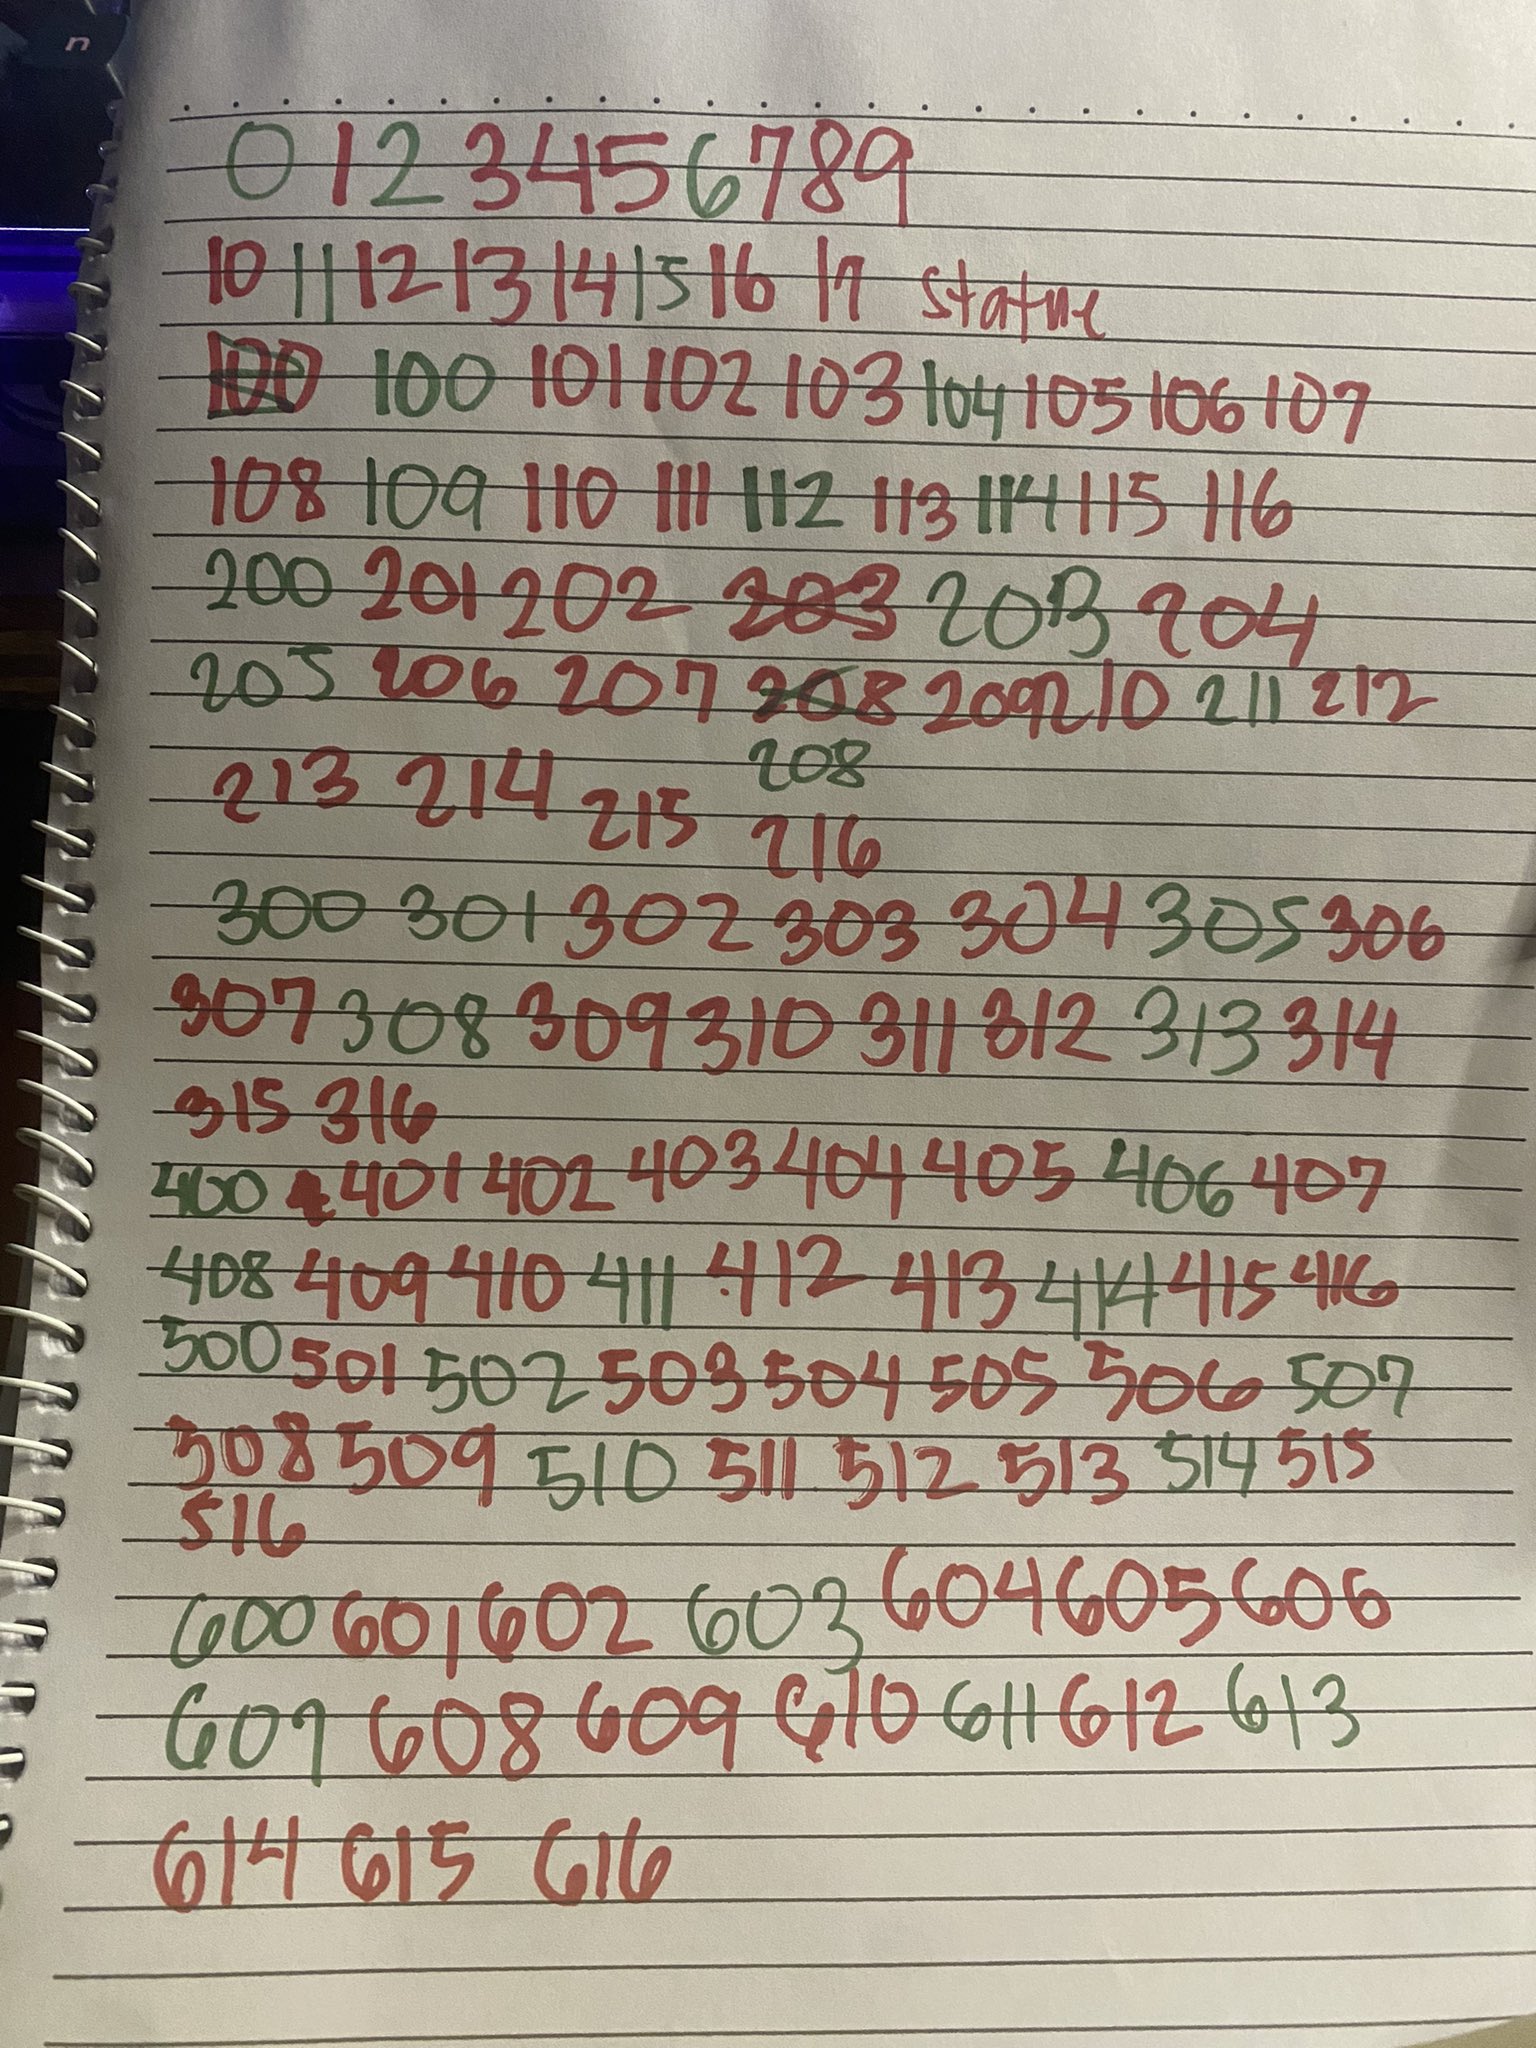 n
0 1 2 3 4 5 6 7 8 9
10 11 12 13 14 15 16 17 statue
100 100 101 102 103 104 105 106 107
108 109 110 111 112 113 114 115 116
200 201 202 203 203 204
205 206 207 208 209 210 211 212
208
213 214 215 216
300 301 302 303 304 305 306
307 308 309 310 311 312 313 314
315 316
400 4 401 402 403 404 405 406 407
408 409 410 411 412 413 414 415 416
500 501 502 503 504 505 506 507
508 509 510 511 512 513 514 515
516
600 601 602 603 604 605 606
607 608 609 610 611 612 613
614 615 616